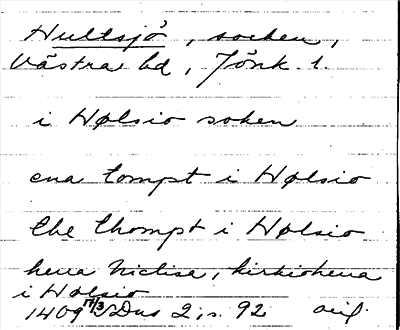 Hultsjö, socken,
Västra hd, Jönk. l.
i Hølsio soken
ena tompt i Hølsio
Ehe thompt i Hølsio
hena Niclisa, kirkiohena
i Hølsio
1409 17/3 SDns 2, s. 92 orig.